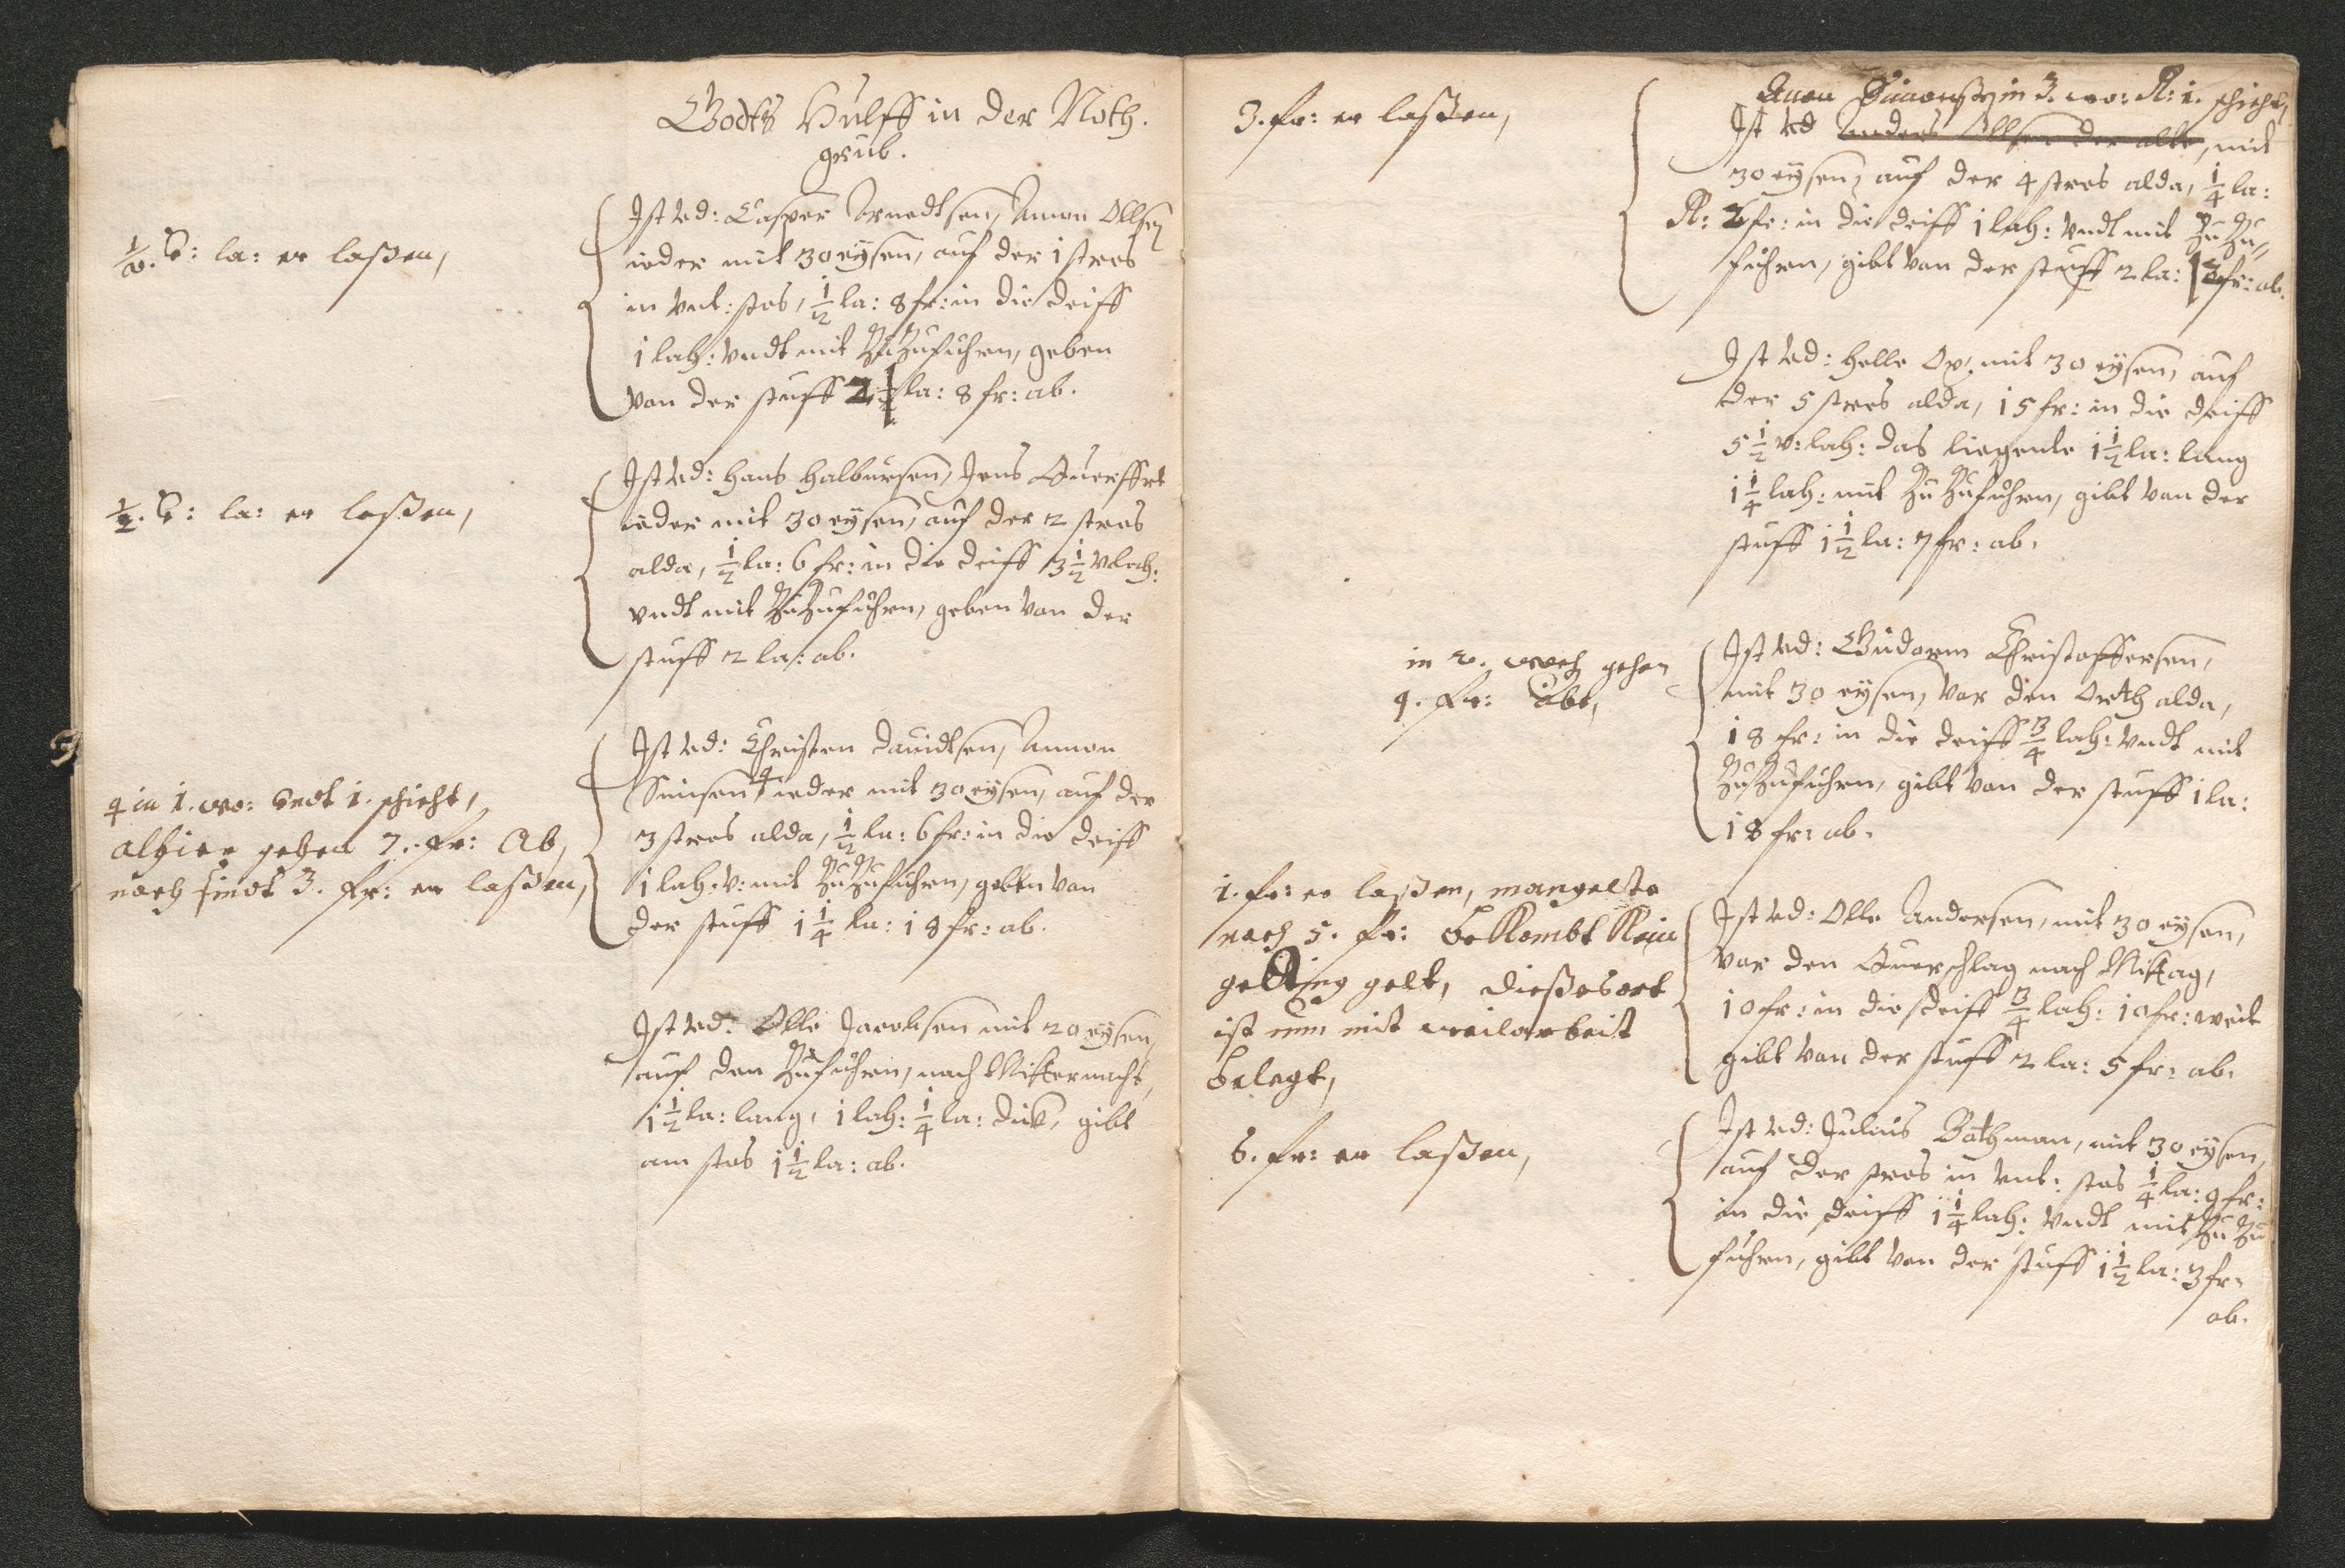 Godts Hülff in der Noth.
grub.
½. E: la: er laßen,
Ist Vd: Casper Arnedtsen, Amon Ollsen
ieder mit 30 eÿsen, auf der 1 stros
in vnt: stos, ½ la: 8 fr: in die deiff
1 lah: vndt mit Zu Zufuhren, geben
von der stuff 2 la: 8 fr: ab.
½. E: la: er laßen,
Ist Vd: Hans Halbursen, Jens Querffrt
ieder mit 30 eÿsen, auf der 2 stros
alda, ½ la: 6 fr: in die deiff 3½ v lach:
vndt mit Zu Zufuhren, geben von der
stuff 2 la: ab.
4 in 1. wo: Endt 1. schicht,
alhier gehen 7. fr: Ab,
noch sindt 3. fr: er laßen,
Ist Vd: Christen Davidtsen, Ammon
Simsen 4 ieder mit 30 eÿsen, auf der
3 stros alda, ½ la: 6 fr: in die deiff
1 lah: v: mit Zu Zufuhren, geben von
der stuff 1¼ la: 18 fr: ab.
Ist Vd: Olle Jacobsen mit 20 eÿsen,
auf den Zufuhren, nach Mitternacht,
1½ la: lang, 1 lah: ¼ la: dick, gibt
am stos 1½ la: ab.
3. fr: er laßen,
Amon Simonsen in 3. wo: R: 1. schicht,
Ist Vd Anders Ollsen der alte, mit
30 eÿsen, auf der 4 stros alda, ¼ la:
R: 2 fr: in die deiff 1 lah: vndt mit Zu Zu=
fuhren, gibt von der stuff 2 la: 2 fr: ab.
Ist Vd: Helle Ox: mit 30 eÿsen, auf
der 5 stros alda, 15 fr: in die deiff
5½ v: lah: das liegente 1½ la: lang
1¼ lah: mit Zu Zufuhren, gibt von der
stuff 1½ la: 7 fr: ab.
in 2. woch gehen
9. fr: Abe,
Ist Vd: Gudorm Christoffersen,
mit 30 eÿsen, vor den Orth alda,
18 fr: in die deiff ¾ lah: vndt mit
Zu Zufuhren, gibt von der stuff 1 la:
18 fr: ab.
1. fr: er laßen, mangelte
noch 5. fr: bekombt kein
geding gelt, dießes ort
ist nun mit weilarbeit
belegt,
Ist Vd: Olle Andersen, mit 30 eÿsen,
vor den Querschlag nach Mittag,
10 fr: in die deiff ¾ lah: 10 fr: weit
gibt von der stuff 2 la: 5 fr: ab.
6. fr: er laßen,
Ist Vd: Julius Bothman, mit 30 eÿsen,
auf der stros in vnt: stos ¼ la: 9 fr:
in die deiff 1¼ lah: vndt mit Zu Zu
fuhren, gibt von der stuff 1½ la: 3 fr:
ab.